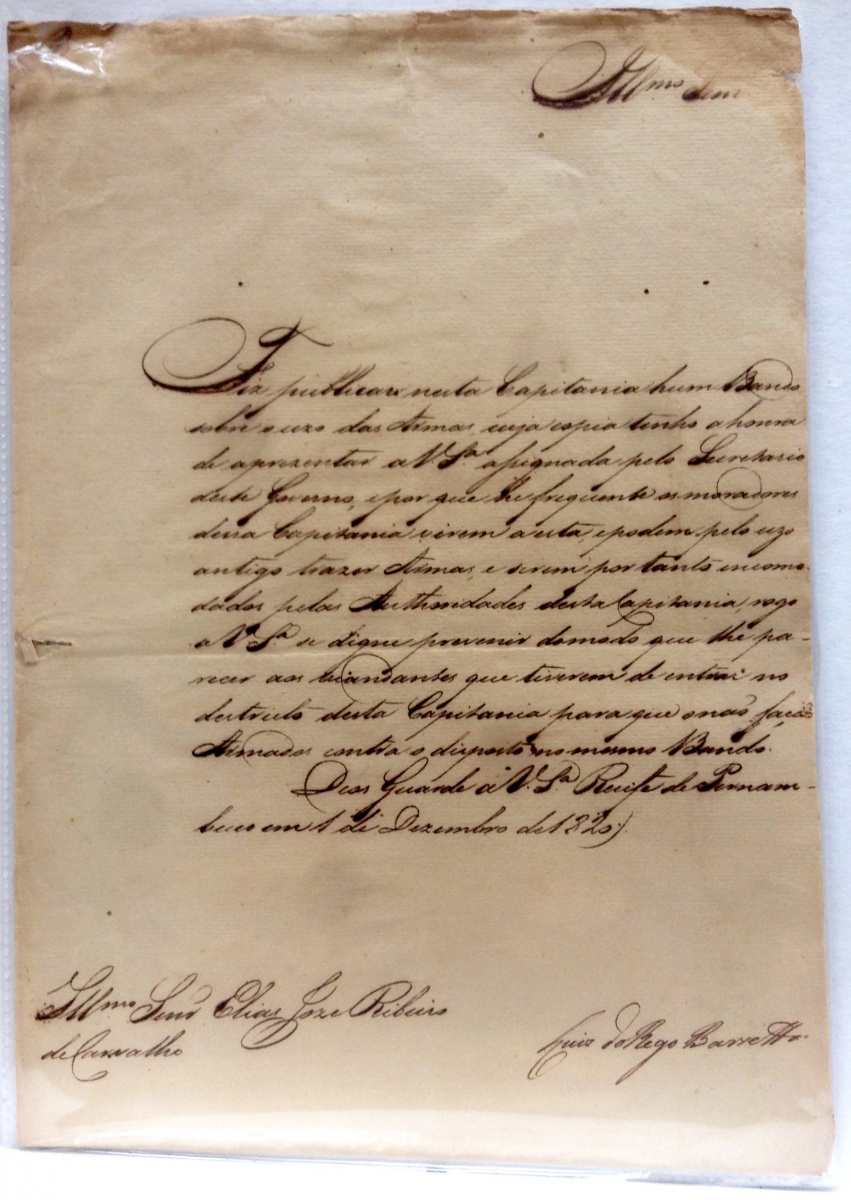 Illmo Senr
Fiz publicar nesta Capitania hum Bando
sobre o uzo das Armas, cuja copia tenho a honra
de aprezentar a V. Sa. assignada pelo Secretario
deste Governo, e por que he frequente os moradores
dessa Capitania virem a esta, e podem pelo uzo
antigo trazer Armas, e serem por tanto incomo-
dados pelas Authoridades desta Capitania, rogo
a V. Sa. se digne prevenir do modo que lhe pa-
recer aos viandantes que tiverem de entrar no
destricto desta Capitania para que o não fação
Armados contra o disposto no mesmo Bando.
Deos Guarde a V. Sa. Recife de Pernam-
buco em 1 de Dezembro de 1820.
Illmo Senr Elias Joze Ribeiro
de Carvalho
Luiz do Rego Barretto